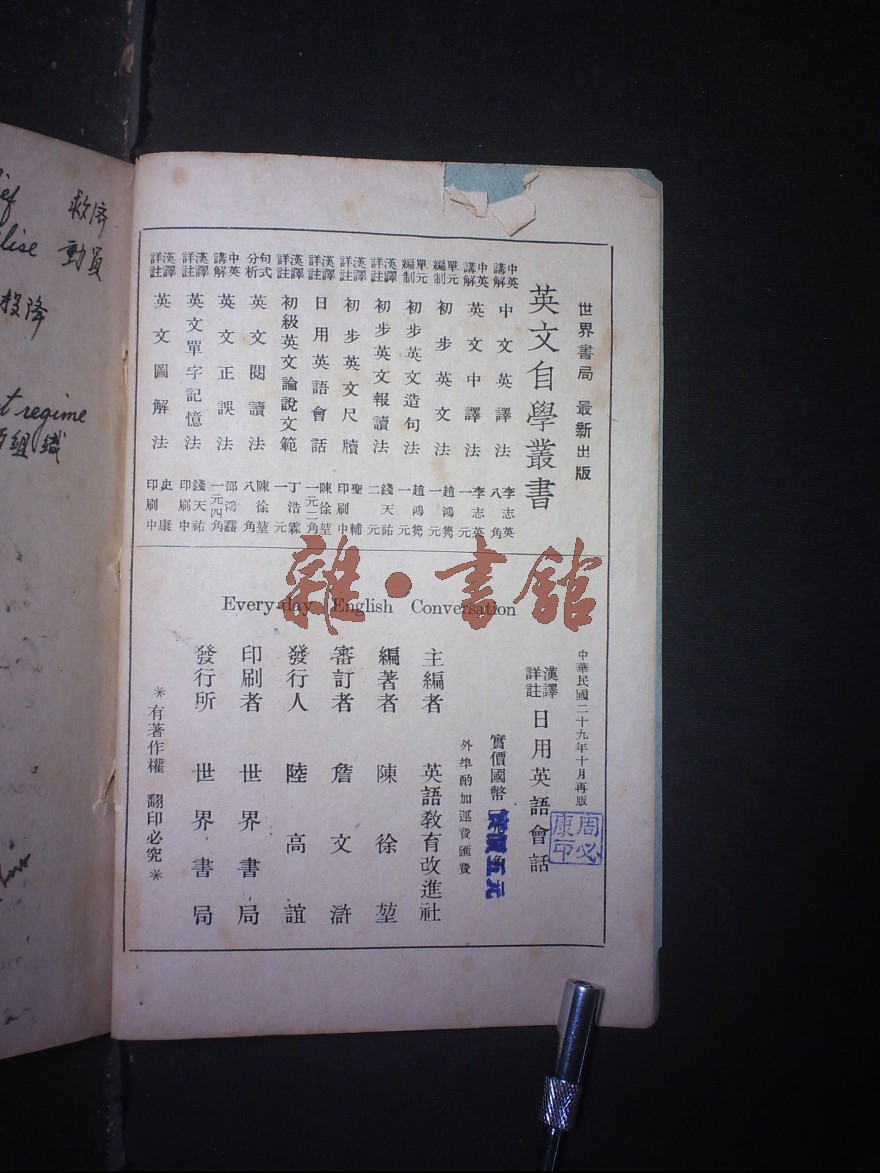 世界書局 最新出版
英文自學叢書
中英講解 中文英譯法 李志英 八角
中英講解 英文中譯法 李志英 一元
單元編制 初步英文法 趙鴻雋 一元
單元編制 初步英文造句法 趙鴻雋 一元
漢譯詳註 初步英文報讀法 錢天祐 二元
漢譯詳註 初步英文尺牘 聖輔 印刷中
漢譯詳註 日用英語會話 陳徐堃 一元二角
漢譯詳註 初級英文論說文範 丁浩霖 一元
句式分析 英文閱讀法 陳徐堃 八角
中英講解 英文正誤法 邵鴻馫 一元四角
漢譯詳註 英文單字記憶法 錢天祐 印刷中
漢譯詳註 英文圖解法 史康 印刷中
Every-day English Conversation
中華民國二十九年十月再版
漢譯詳註 日用英語會話
實價國幣
五元
外埠酌加運費匯費
主編者 英語教育改進社
編著者 陳徐堃
審訂者 詹文滸
發行人 陸高誼
印刷者 世界書局
發行所 世界書局
＊有著作權 翻印必究＊
周必康印
雜·書館
救濟
動員
投降
regime
組織